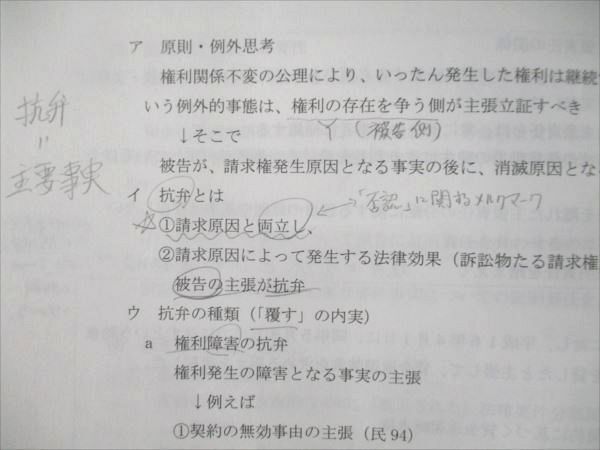 ア 原則・例外思考
権利関係不変の公理により、いったん発生した権利は継続
いう例外的事態は、権利の存在を争う側が主張立証すべき
Y(被告側)
↓そこで
被告が、請求権発生原因となる事実の後に、消滅原因とな
抗弁
=
主要事実
イ 抗弁とは
「否認」に関するメルクマーク
☆①請求原因と両立し、
②請求原因によって発生する法律効果(訴訟物たる請求
被告の主張が抗弁
ウ 抗弁の種類(「覆す」の内実)
a 権利障害の抗弁
権利発生の障害となる事実の主張
↓例えば
①契約の無効事由の主張(民 94)